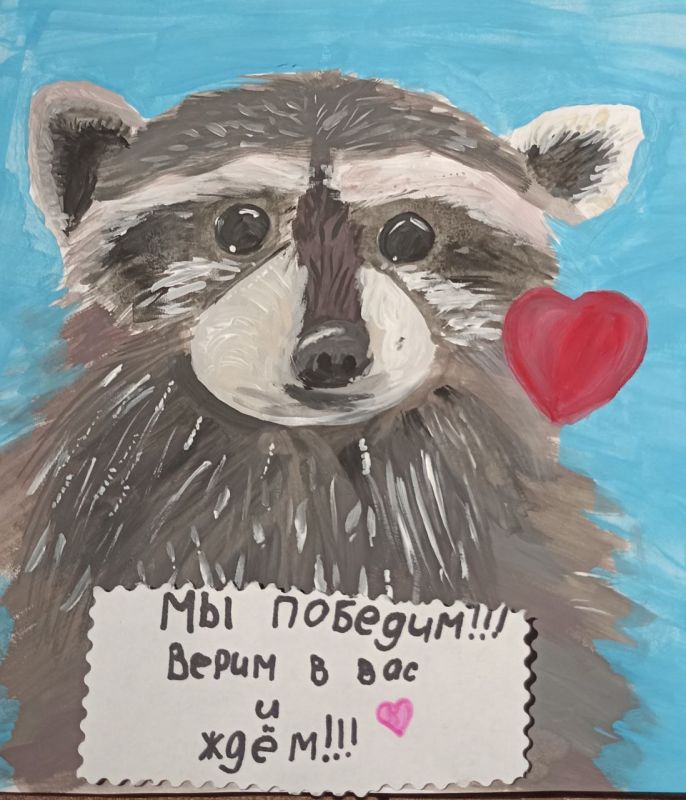 Мы победим!!!
Верим в вас
и
ждём!!!